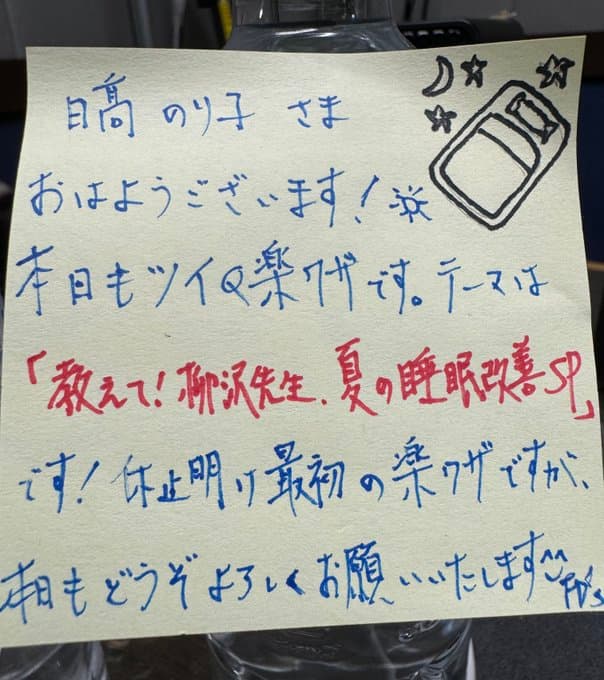 日髙 のり子 さま
おはようございます!
本日もツイQ楽ワザです。テーマは
「教えて!柳沢先生、夏の睡眠改善SP」
です!休止明け最初の楽ワザですが、
本日もどうぞよろしくお願いいたします^^
FD's